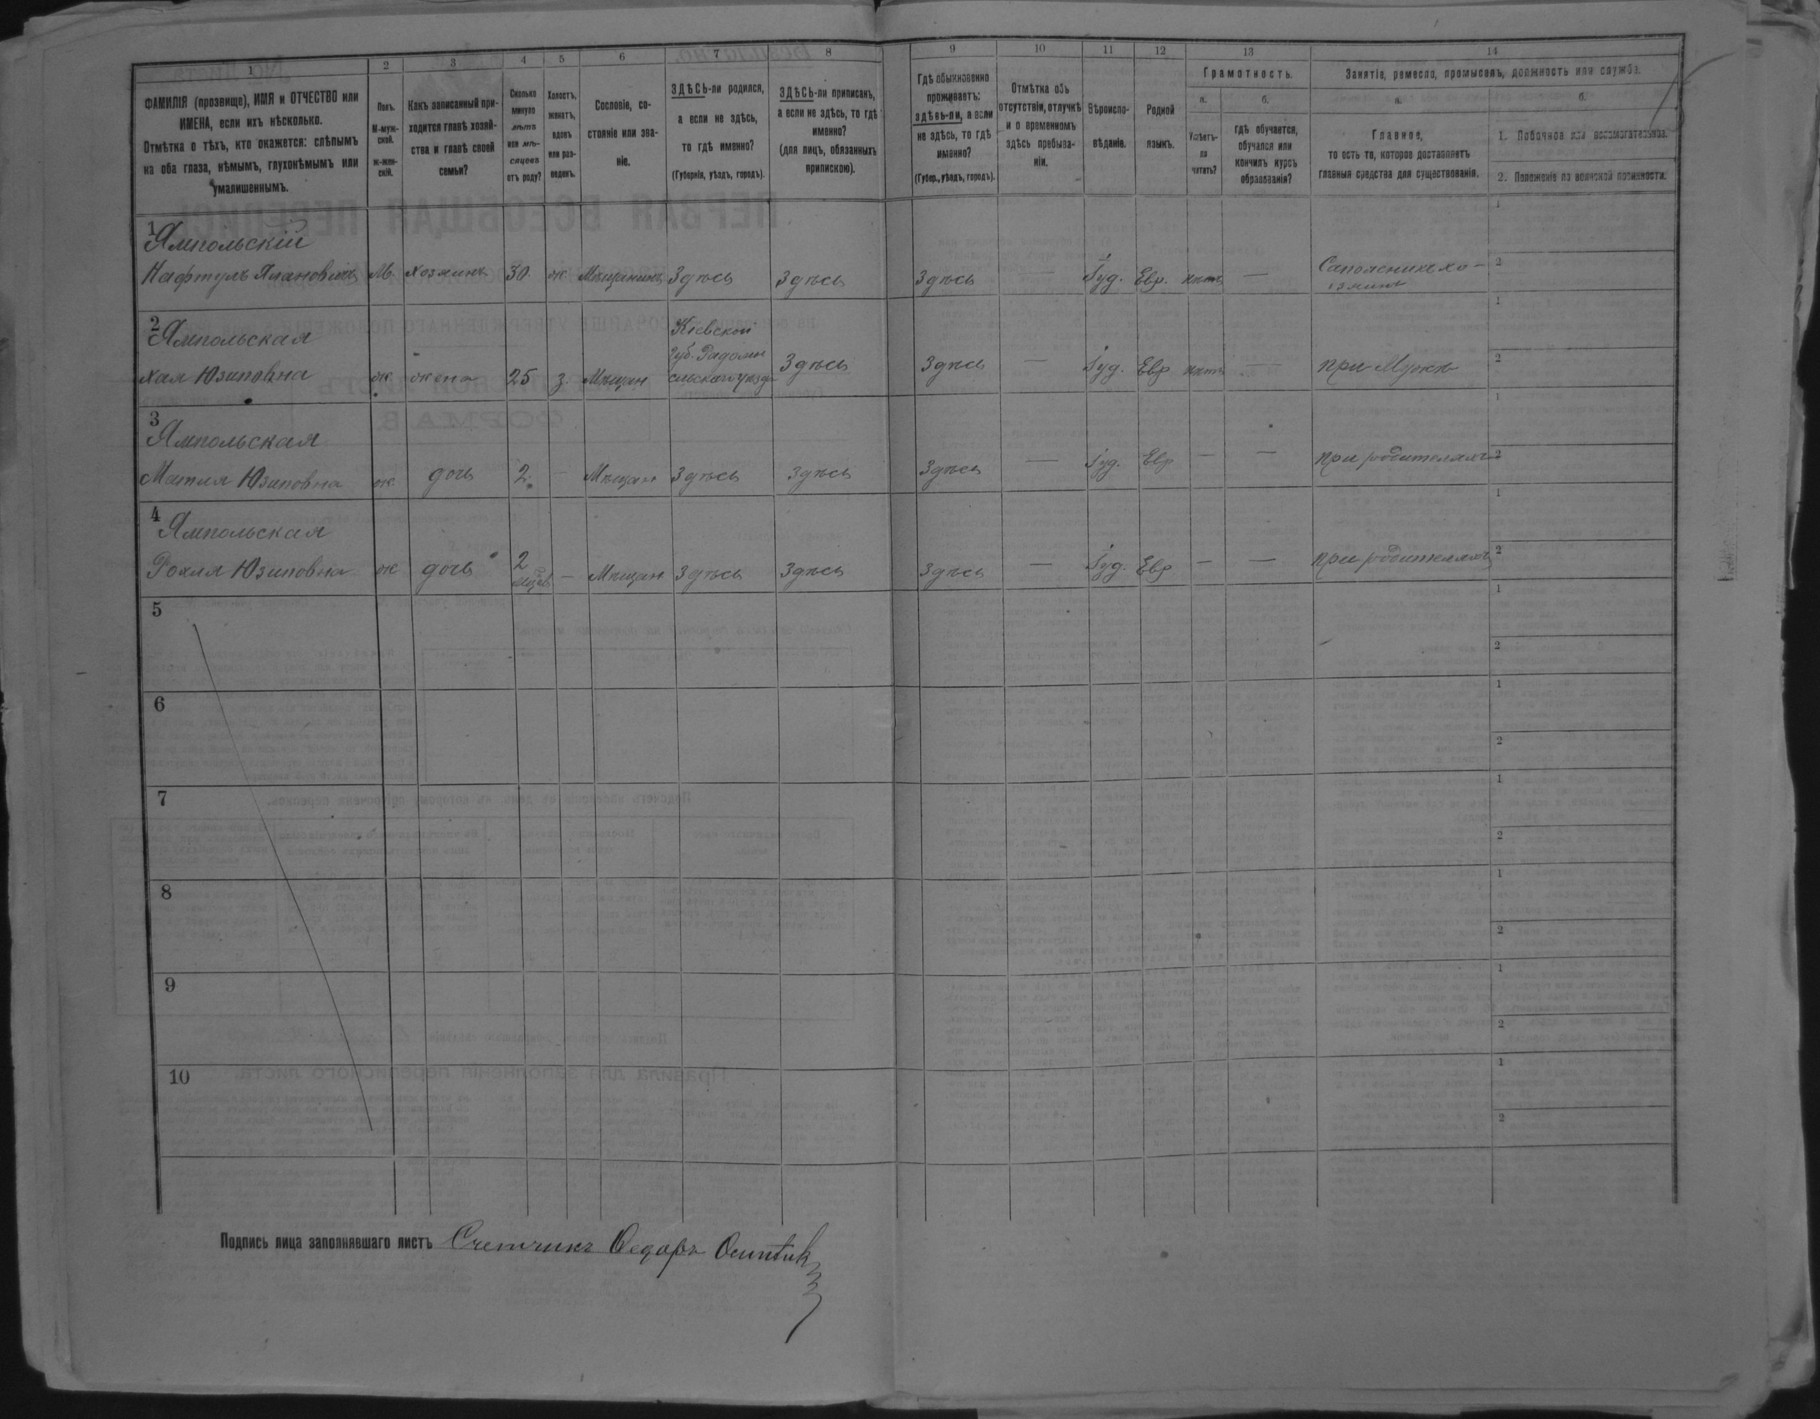 1
2
3
4
5
6
7
8
9
10
11
12
13
14
ФАМИЛІЯ (прозвище), ИМЯ и ОТЧЕСТВО или
ИМЕНА, если ихъ нѣсколько.
Отмѣтка о тѣхъ, кто окажется: слѣпымъ
на оба глаза, нѣмымъ, глухонѣмымъ или
умалишеннымъ.
Полъ.
М-муж-
ской.
ж-жен-
скій.
Какъ записанный при-
ходится главѣ хозяй-
ства и главѣ своей
семьи?
Сколько
минуло
лѣтъ
или мѣ-
сяцевъ
отъ роду?
Холостъ,
женатъ,
вдовъ
или раз-
веденъ.
Сословіе, со-
стояніе или зва-
ніе.
ЗДѢСЬ-ли родился,
а если не здѣсь,
то гдѣ именно?
(Губернія, уѣздъ, городъ).
ЗДѢСЬ-ли приписанъ,
а если не здѣсь, то гдѣ
именно?
(для лицъ, обязанныхъ
припискою).
Гдѣ обыкновенно
проживаетъ:
здѣсь-ли, а если
не здѣсь, то гдѣ
именно?
(Губер., уѣздъ, городъ).
Отмѣтка объ
отсутствіи, отлучкѣ
и о временномъ
здѣсь пребыва-
ніи.
Вѣроиспо-
вѣданіе.
Родной
языкъ.
Грамотность.
а.
Умѣетъ-
ли
читать?
б.
гдѣ обучается,
обучался или
кончилъ курсъ
образованія?
Занятіе, ремесло, промыселъ, должность или служба.
а.
Главное,
то есть то, которое доставляетъ
главныя средства для существованія.
б.
1. Побочное или вспомогательное.
2. Положеніе по воинской повинности.
1
Ямпольскій
Нафтуль М хозяинъ 30 ж Мѣщанинъ Здѣсь Здѣсь Здѣсь — Іуд. Евр. нѣтъ —
1
2
2
Ямпольская
Хая Юзиповна ж жена 25 з. Мѣщан Кіевской
губ. Радомы
сльскаго уѣзда
Здѣсь Здѣсь — Іуд. Евр нѣтъ — при Мужѣ
1
2
3
Ямпольская
Матля Юзиповна ж дочь 2 — Мѣщан Здѣсь Здѣсь Здѣсь — Іуд. Евр — — при родителяхъ
1
2
4
Ямпольская
Рохля Юзиповна ж дочь 2
— Мѣщан Здѣсь Здѣсь Здѣсь — Іуд. Евр — — при родителяхъ
1
2
5
1
2
6
1
2
7
1
2
8
1
2
9
1
2
10
1
2
Подпись лица заполнявшаго листъ Счетчикъ Федоръ